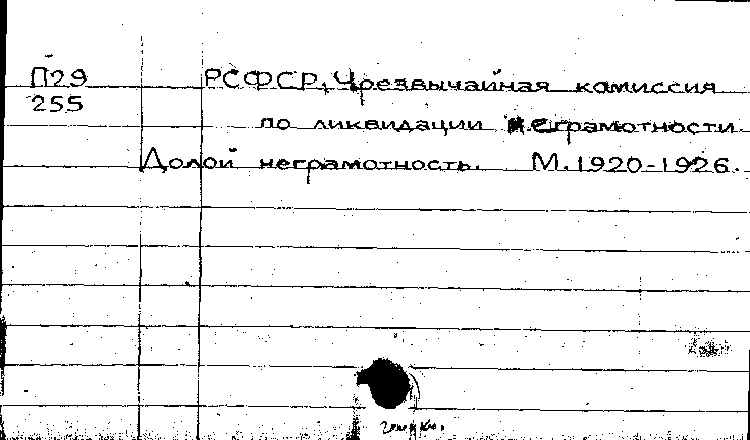 П29 РСФСР. Чрезвычайная комиссия
255
по ликвидации неграмотности
Долой неграмотность. М.1920-1926.